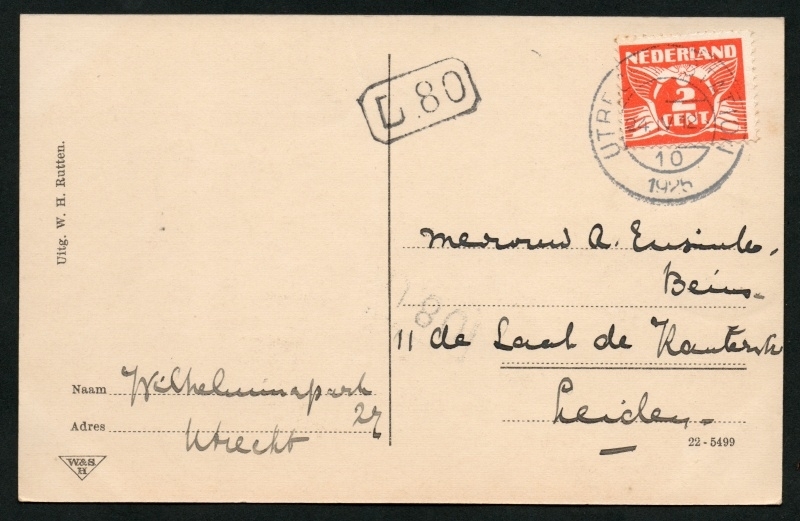 Uitg. W. H. Rutten.
L 80
NEDERLAND
2
CENT
UTRE
10
1925
Mevrouw A. Ensink,
Beins
80
11 de Laat de Kanterstr
Leiden
Naam Wilhelminapark
27
Adres Utrecht
W&S.
H
22-5499